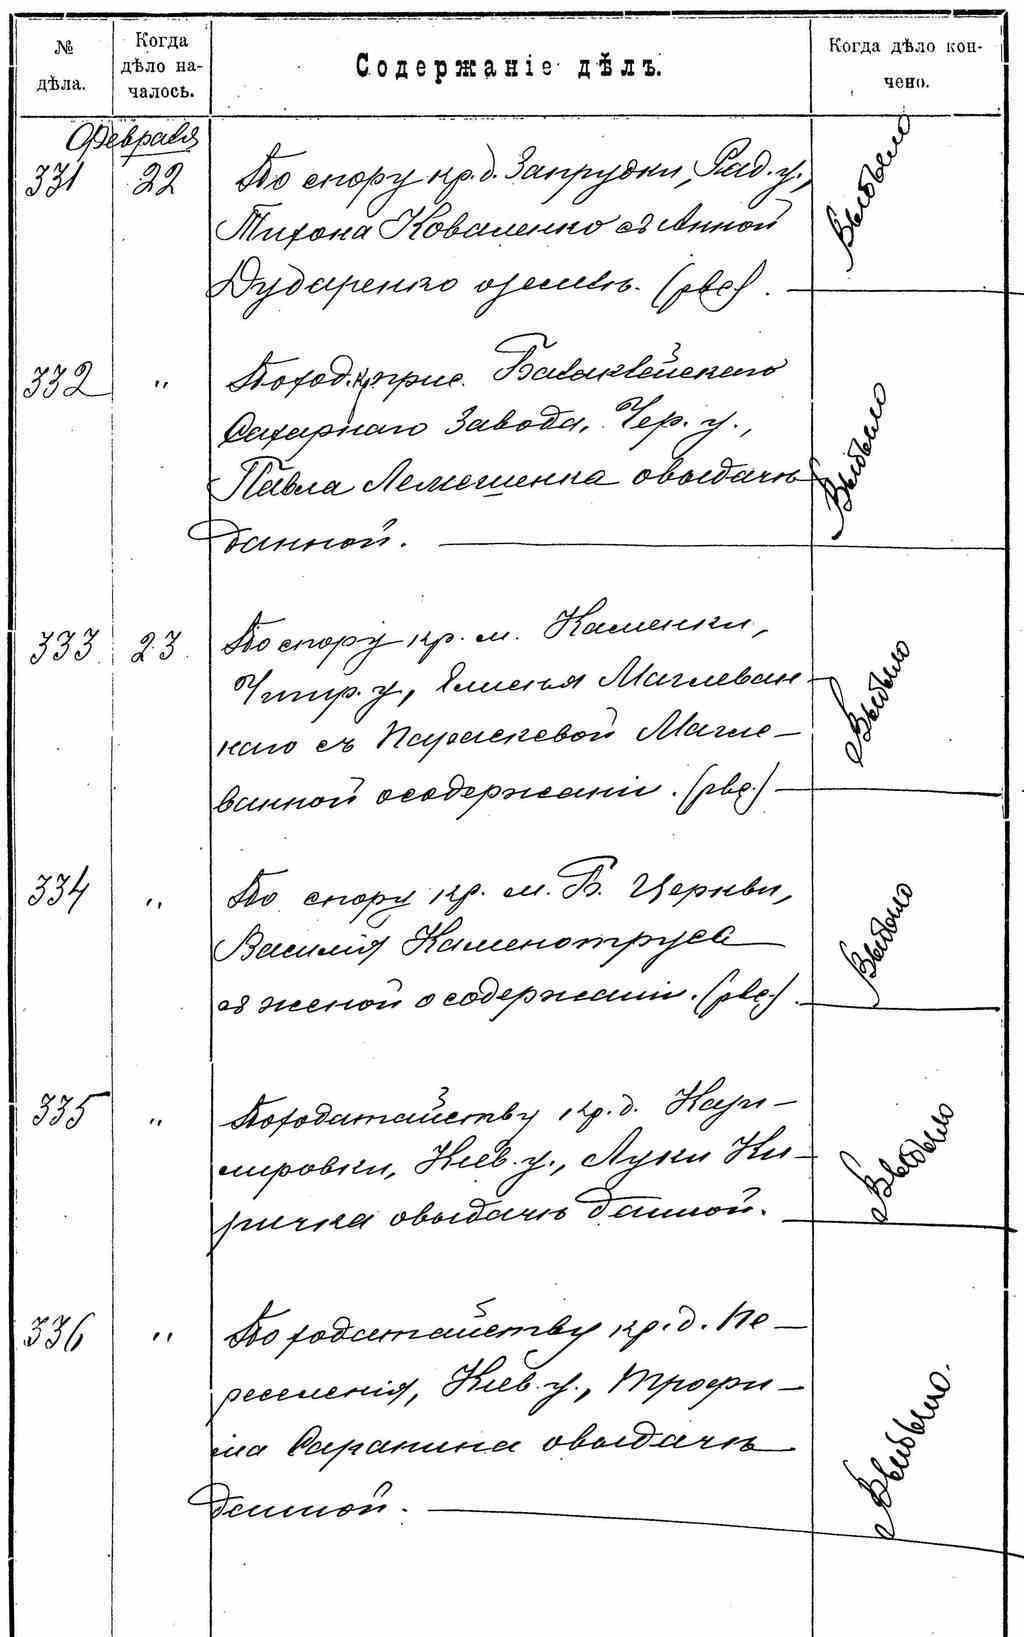 № дѣла.
Когда дѣло началось.
Содержаніе дѣлъ.
Когда дѣло кончено.
Февраля
331 22 По спору кр. д. Запрудки, Рад. у.,
Тихона Коваленко съ Анной
Дударенко о землѣ. (рвс).
Выбыло
332 " По ход. кр. прис.
Сахарнаго Завода, Чер. у.,
Павла Лемешенка о выдачѣ
данной.
Выбыло
333 23 По спору кр. м. Каменки,
Чигир. у.,
наго съ Параскевой Магле-
ванной о содержаніи. (рвс.)
Выбыло
334 " По спору кр. м. Б. Церкви,
Василія Каменотруса
съ женой о содержаніи. (рвс.)
Выбыло
335 " По ходатайству кр. д. Кази-
мировки, Кіев. у., Луки Ки-
ричка о выдачѣ данной.
Выбыло
336 " По ходатайству кр. д. Пе-
реселенія, Кіев. у., Трофи-
ма Сарапина о выдачѣ
данной.
Выбыло.